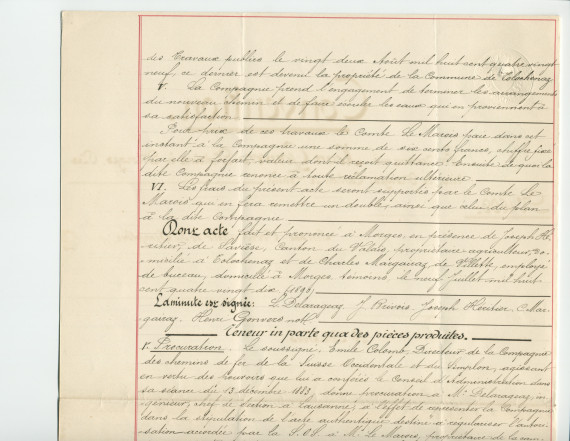 des Travaux publics le vingt deux Août mil huit cent quatre vingt
neuf, ce dernier est devenu la propriété de la Commune de Tolochenaz
V. La Compagnie prend l'engagement de terminer les arrangements
du nouveau chemin et de faire écouler les eaux qui en proviennent à
sa satisfaction.
Pour prix de ces travaux le Comte Le Marois paie dans cet
instant à la Compagnie une somme de six cents francs, chiffre fixé
par elle à forfait, valeur dont il reçoit quittance. Ensuite de quoi la
dite Compagnie renonce à toute réclamation ultérieure.
VI. Les frais du présent acte seront supportés par le Comte Le
Marois qui en fera remettre un double, ainsi que celui du plan
à la dite Compagnie
Dont acte fait et prononcé à Morges, en présence de Joseph Hé-
ritier, de Savièse, Canton du Valais, propriétaire-agriculteur, do-
micilié à Tolochenaz et de Charles Margueray, de Villette, employé
de bureau, domicilié à Morges, témoins, le neuf Juillet mil huit
cent quatre vingt dix (1890)
La minute est signée: L. Delarageaz, J. Héritier, C. Mar-
gueray. Henri not.
Teneur in parte qua des pièces produites.
1º. Procuration. Le soussigné, Emile Colomb, Directeur de la Compagnie
des chemins de fer de la Suisse Occidentale et du Simplon, agissant
en vertu des pouvoirs que lui a conférés le Conseil d'Administration dans
sa séance du 13 décembre 1883, donne procuration à Mr. Delarageaz, in-
génieur, chef de section à Lausanne, à l'effet de représenter la Compagnie
dans la stipulation de l'acte authentique destiné à régulariser l'autori-
sation accordée par la S.O.S. à Mr. Le Marois, propriétaire de la